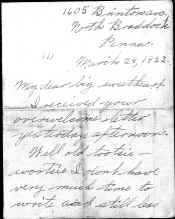 1605
North Braddock
Penna.
March 29, 1922.
My dear big sweetheart
I received your
ever welcome letter
yesterday afternoon.
Well old tootsie-
wootsie I don't have
very much time to
write and still as